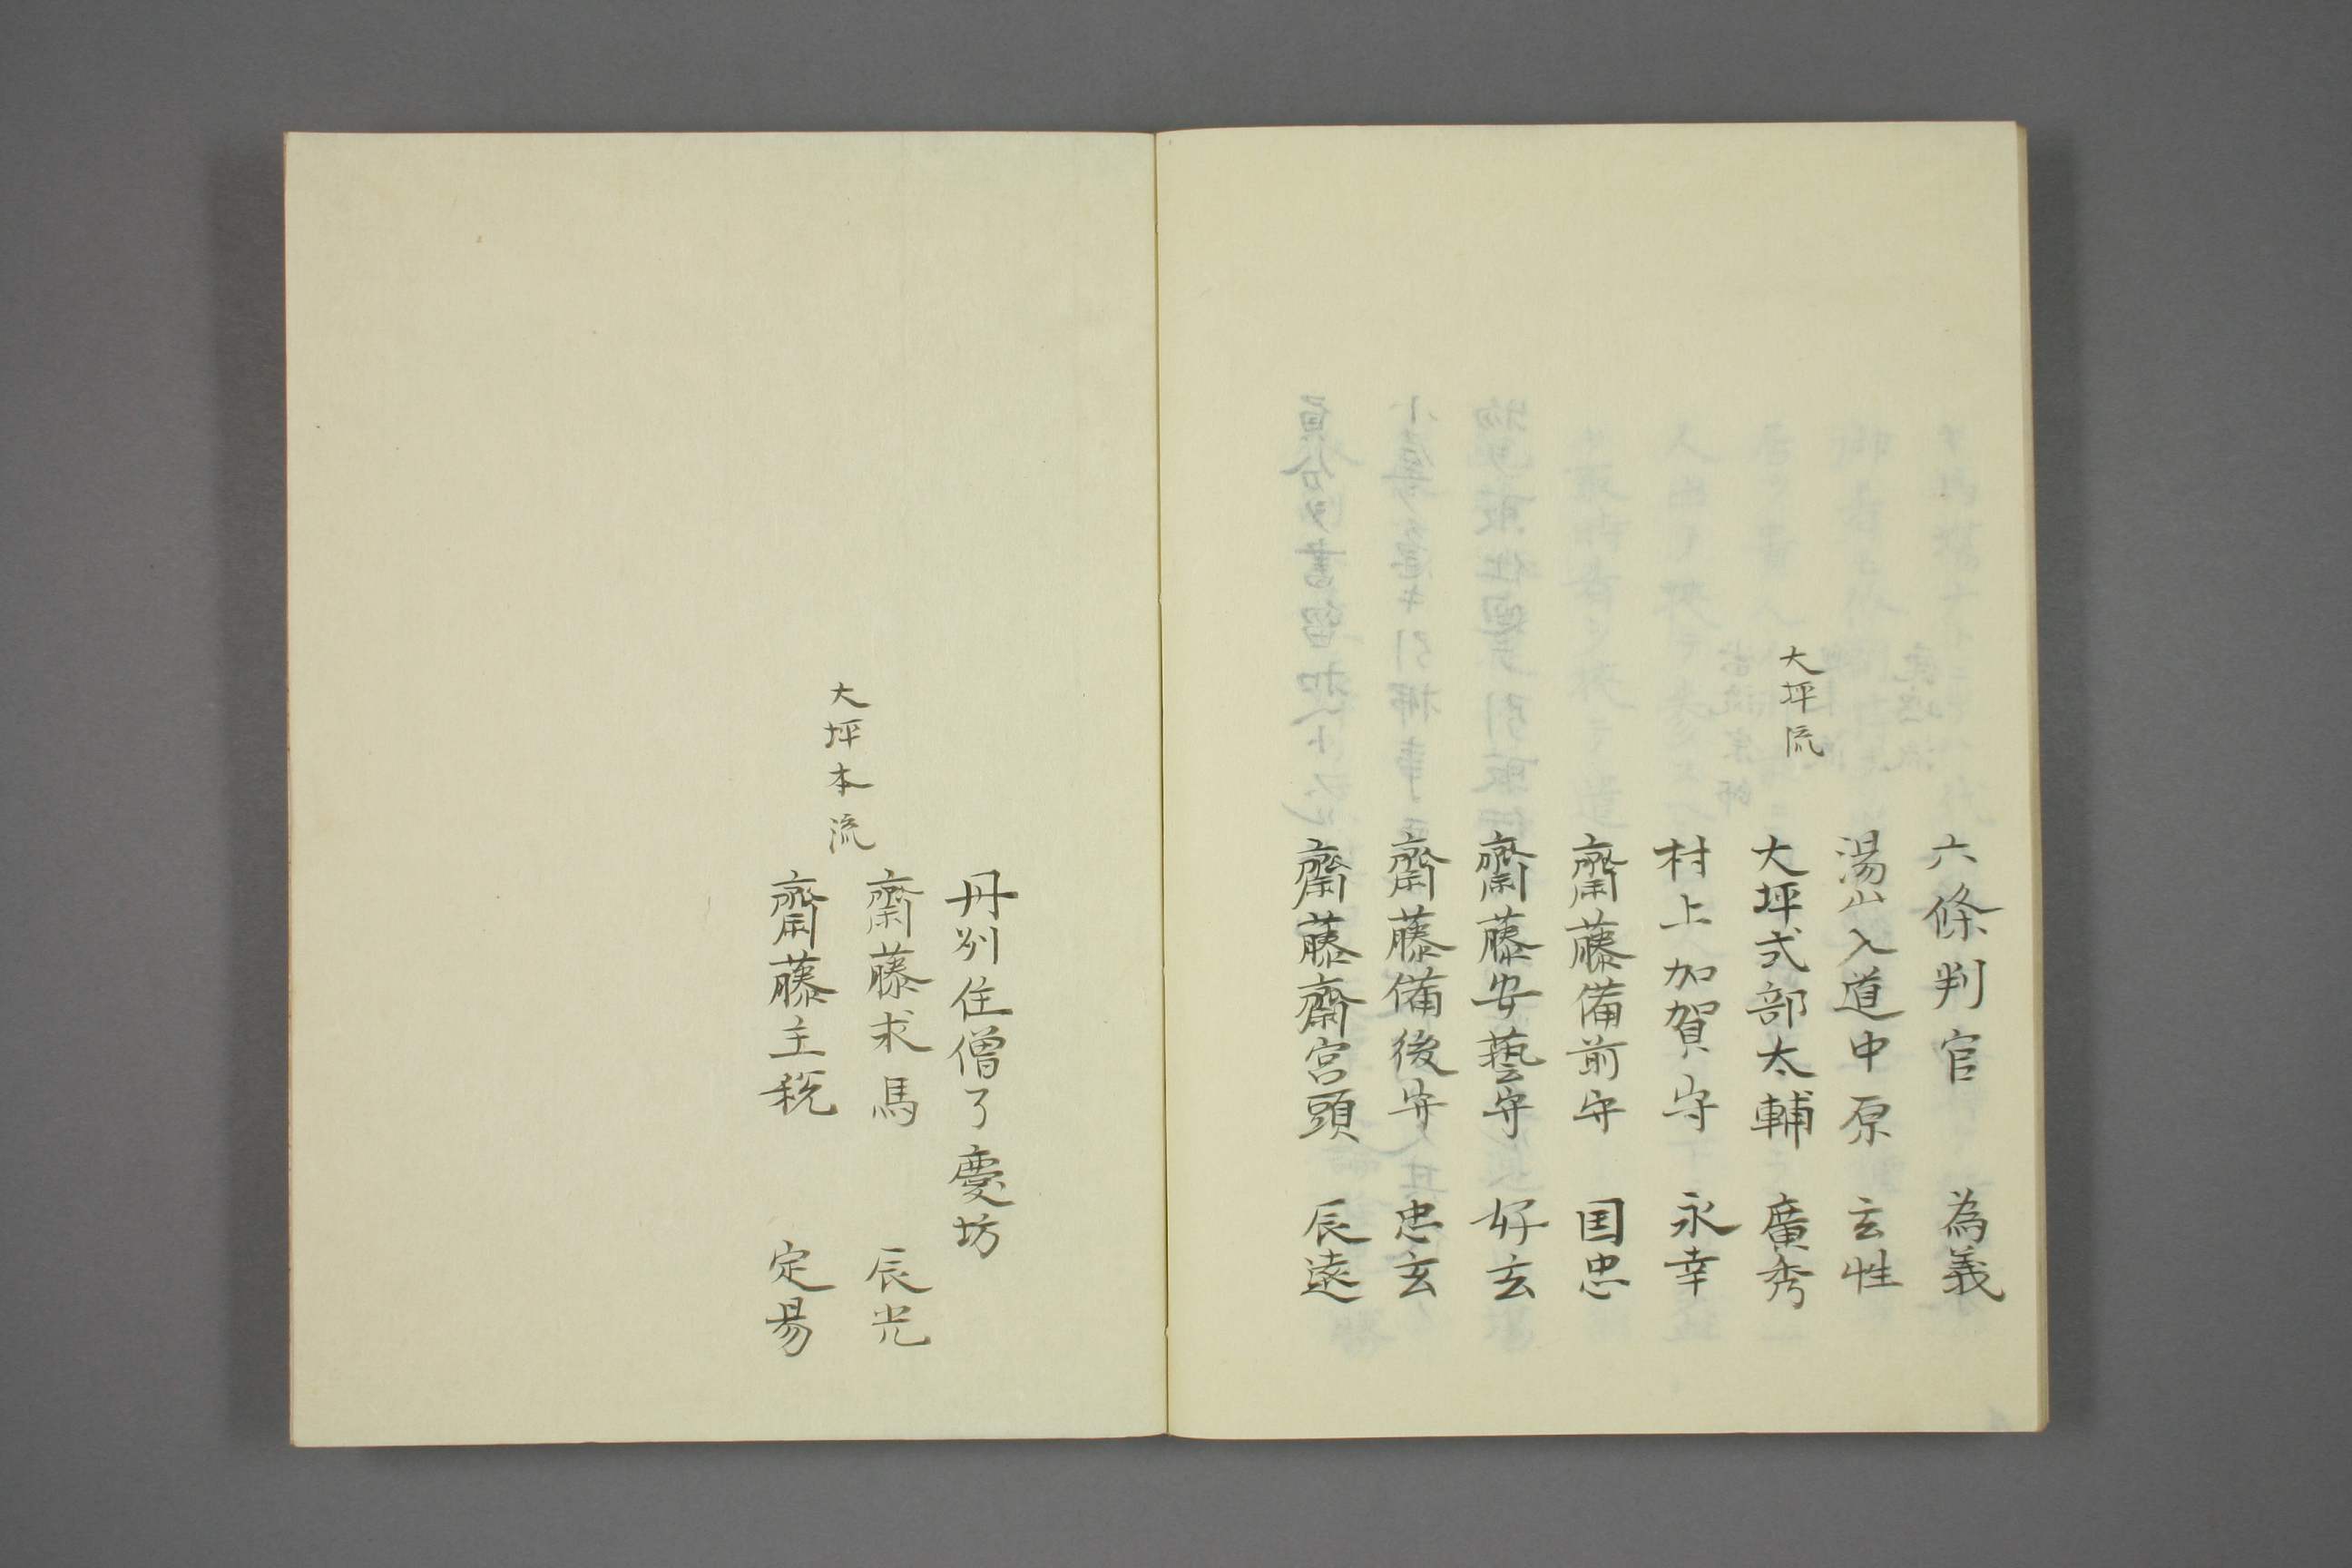 六條判官 為義
湯山入道中原 玄性
大坪流
大坪式部太輔 廣秀
村上加賀守 永幸
齋藤備前守 国忠
齋藤安藝守 好玄
齋藤備後守 忠玄
齋藤齋宮頭 辰遠
丹州住僧了慶坊
齋藤求馬 辰光
大坪本流
齋藤主税 定易